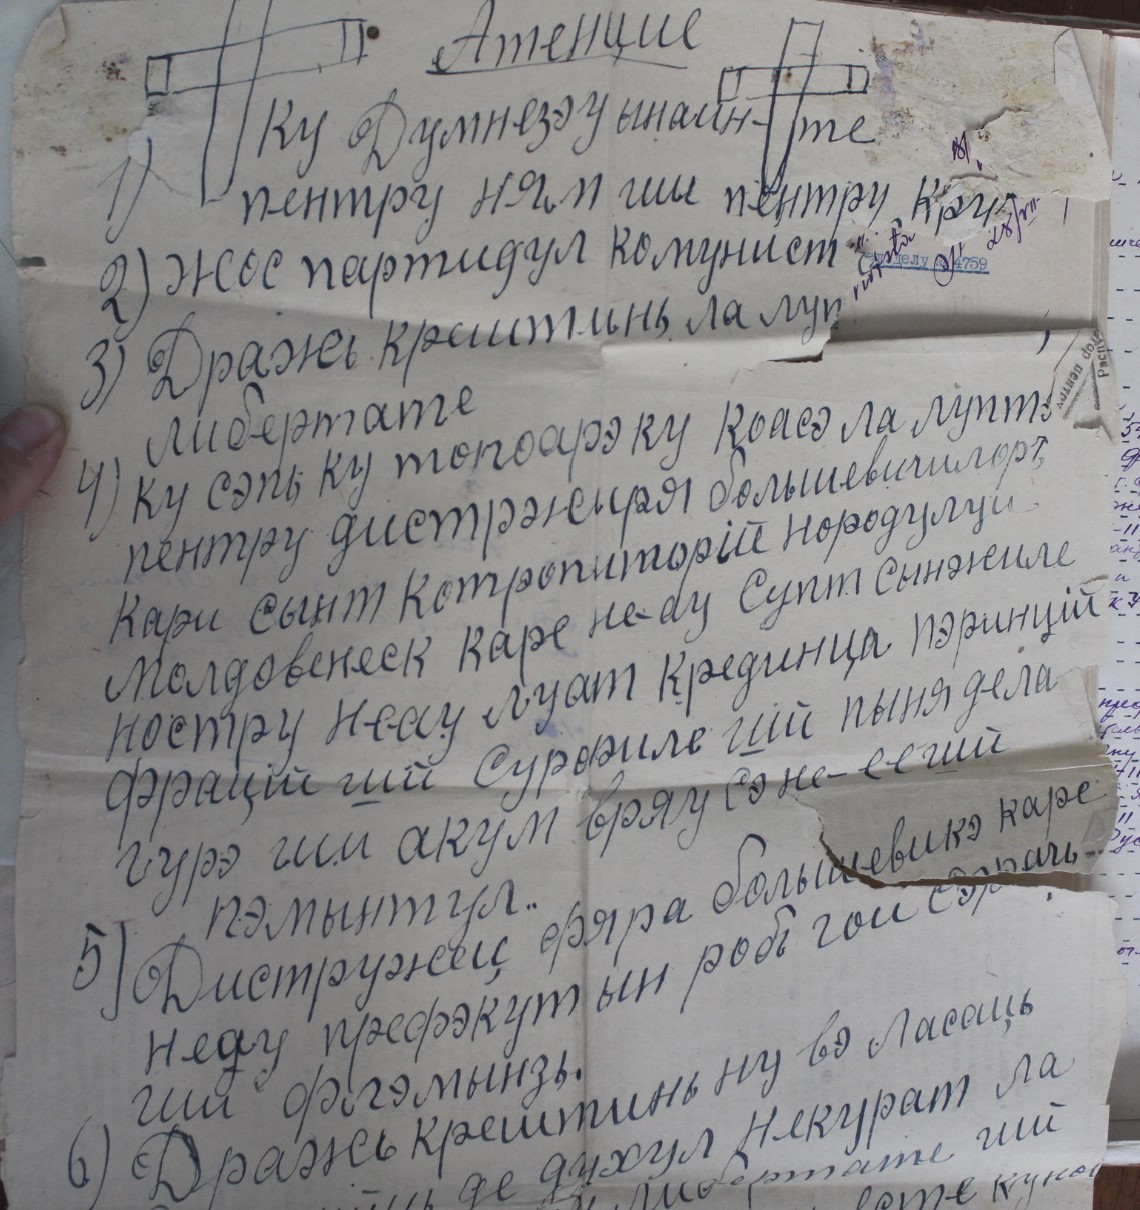 Атенцие
1) Ку Думнезэу ынаинте
пентру ням ши пентру Кру
2) Жос партидул комунист
к делу № 4759
3) Дражь крештинь ла луп
либертате
4) Ку сэпь ку топоарэ ку коасэ ла луптэ
пентру дистрэжыря большевичилорт
кари сынт котропиторій нородулуй
молдовенеск каре не-ау супт сынжиле
ностру неау луат крединца пэринцій
фрацій ший сурориле ший пыня дела
гурэ ши акум вряу сэ не-ее ший
пэмынтул..
5) Дистружец фяра большевикэ каре
неау префэкут ын робь гои сэрачь
ший флэмынзь.
6) Дражь крештинь ну вэ ласаць
де духул некурат ла
либертате ший